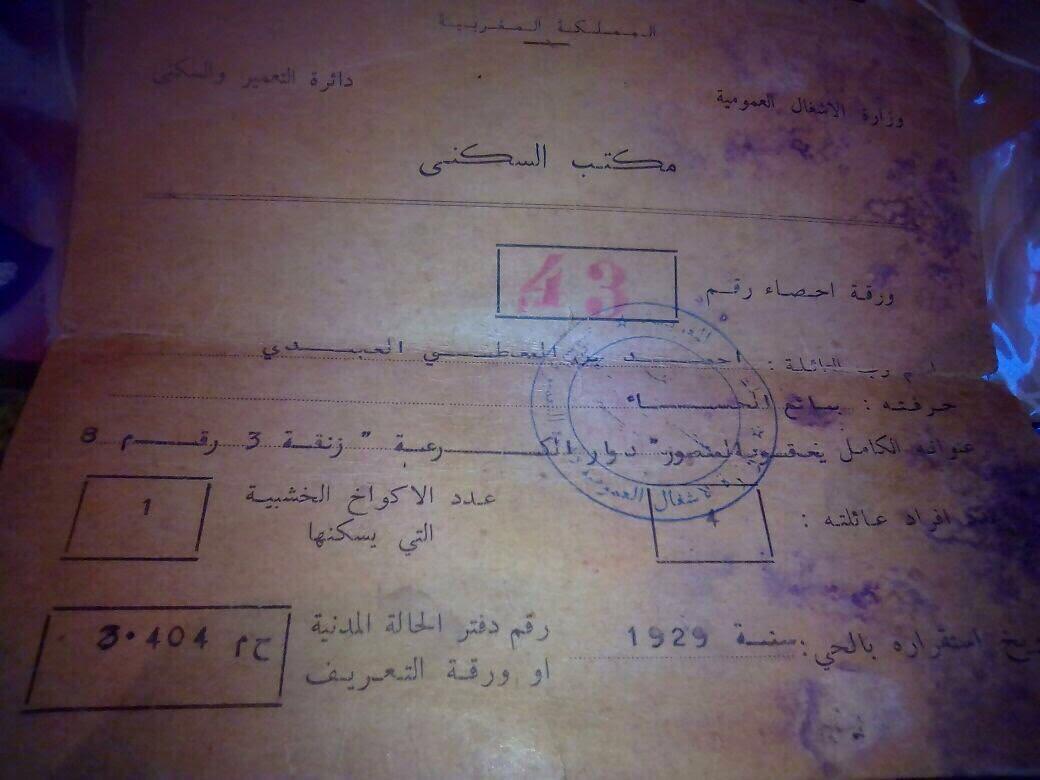 المملكة المغربية
وزارة الاشغال العمومية
دائرة التعمير والسكنى
مكتب السكنى
ورقة احصاء رقم 43
اسم رب العائلة : احمد بن المعطي العبدي
حرفته : بائع الحساء
عنوانه الكامل يعقوب المنصور" دوار الكرعة " زنقة 3 رقم 8
افراد عائلته : 4
عدد الاكواخ الخشبية التي يسكنها 1
استقراره بالحي : سنة 1929
رقم دفتر الحالة المدنية او ورقة التعريف
ح م 3.404
الاشغال العمومية